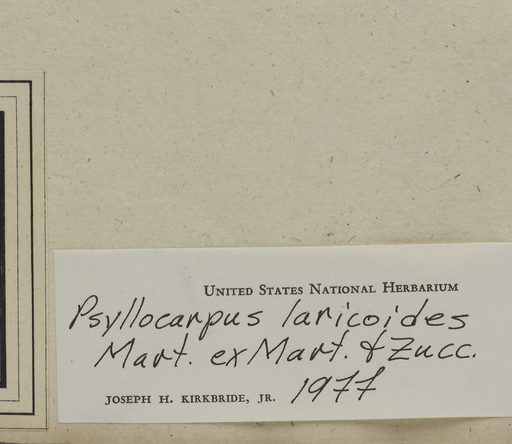 United States National Herbarium
Psyllocarpus laricoides
Mart. ex Mart. & Zucc.
JOSEPH H. KIRKBRIDE, JR. 1977